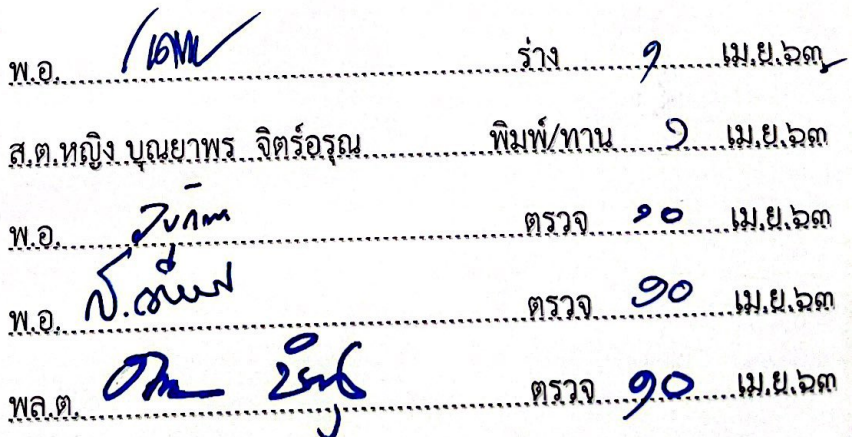 พ.อ. ร่าง ๑ เม.ย.๖๓
ส.ต.หญิง บุณยาพร จิตร์อรุณ พิมพ์/ทาน ๑ เม.ย.๖๓
พ.อ. ตรวจ ๑๐ เม.ย.๖๓
พ.อ. ตรวจ ๑๐ เม.ย.๖๓
พล.ต. ตรวจ ๑๐ เม.ย.๖๓